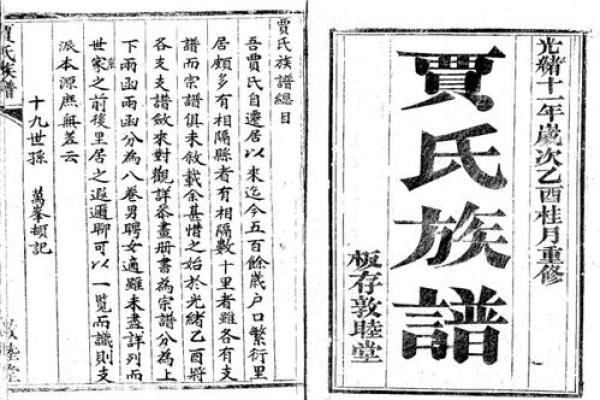 光緒十一年歲次乙酉桂月重修
賈氏族譜
板存敦睦堂
賈氏族譜總目
吾賈氏自遷居以來迄今五百餘歲户口繁衍里
居頗多有相隔縣者有相隔數十里者雖各有支
譜而宗譜俱未敘載余甚惜之始於光緒乙酉將
各支支譜斂來對觀詳叅畫册書為宗譜分為上
下兩函兩函分為八卷男聘女適雖未盡詳列而
世家之前後里居之遐邇聊可以一覽而識則支
派本源庶無差云
十九世孫 萬峯頓記
賈氏族譜
敦睦堂